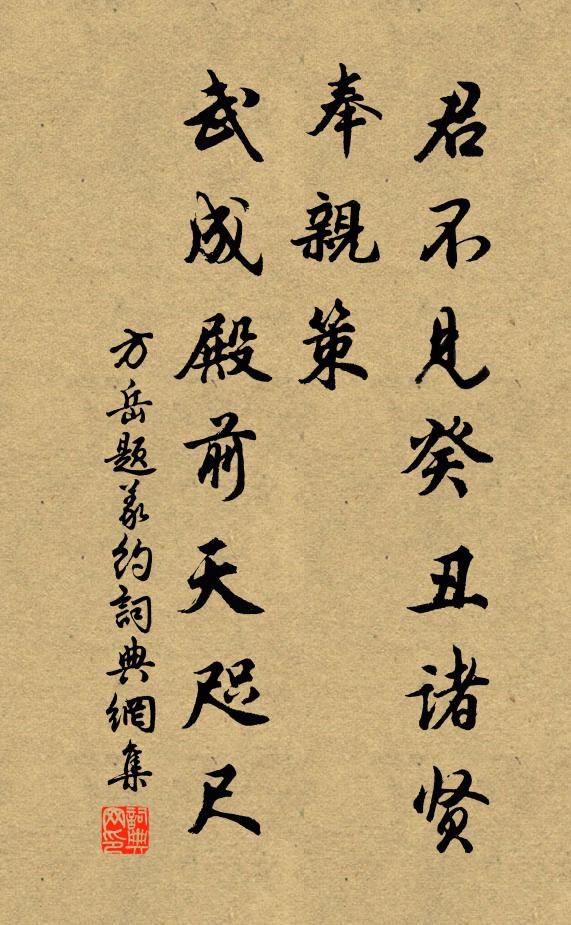 君不见癸丑诸贤
奉親策
武成殿前天咫尺
方岳题义约詞典網集
詞典网印